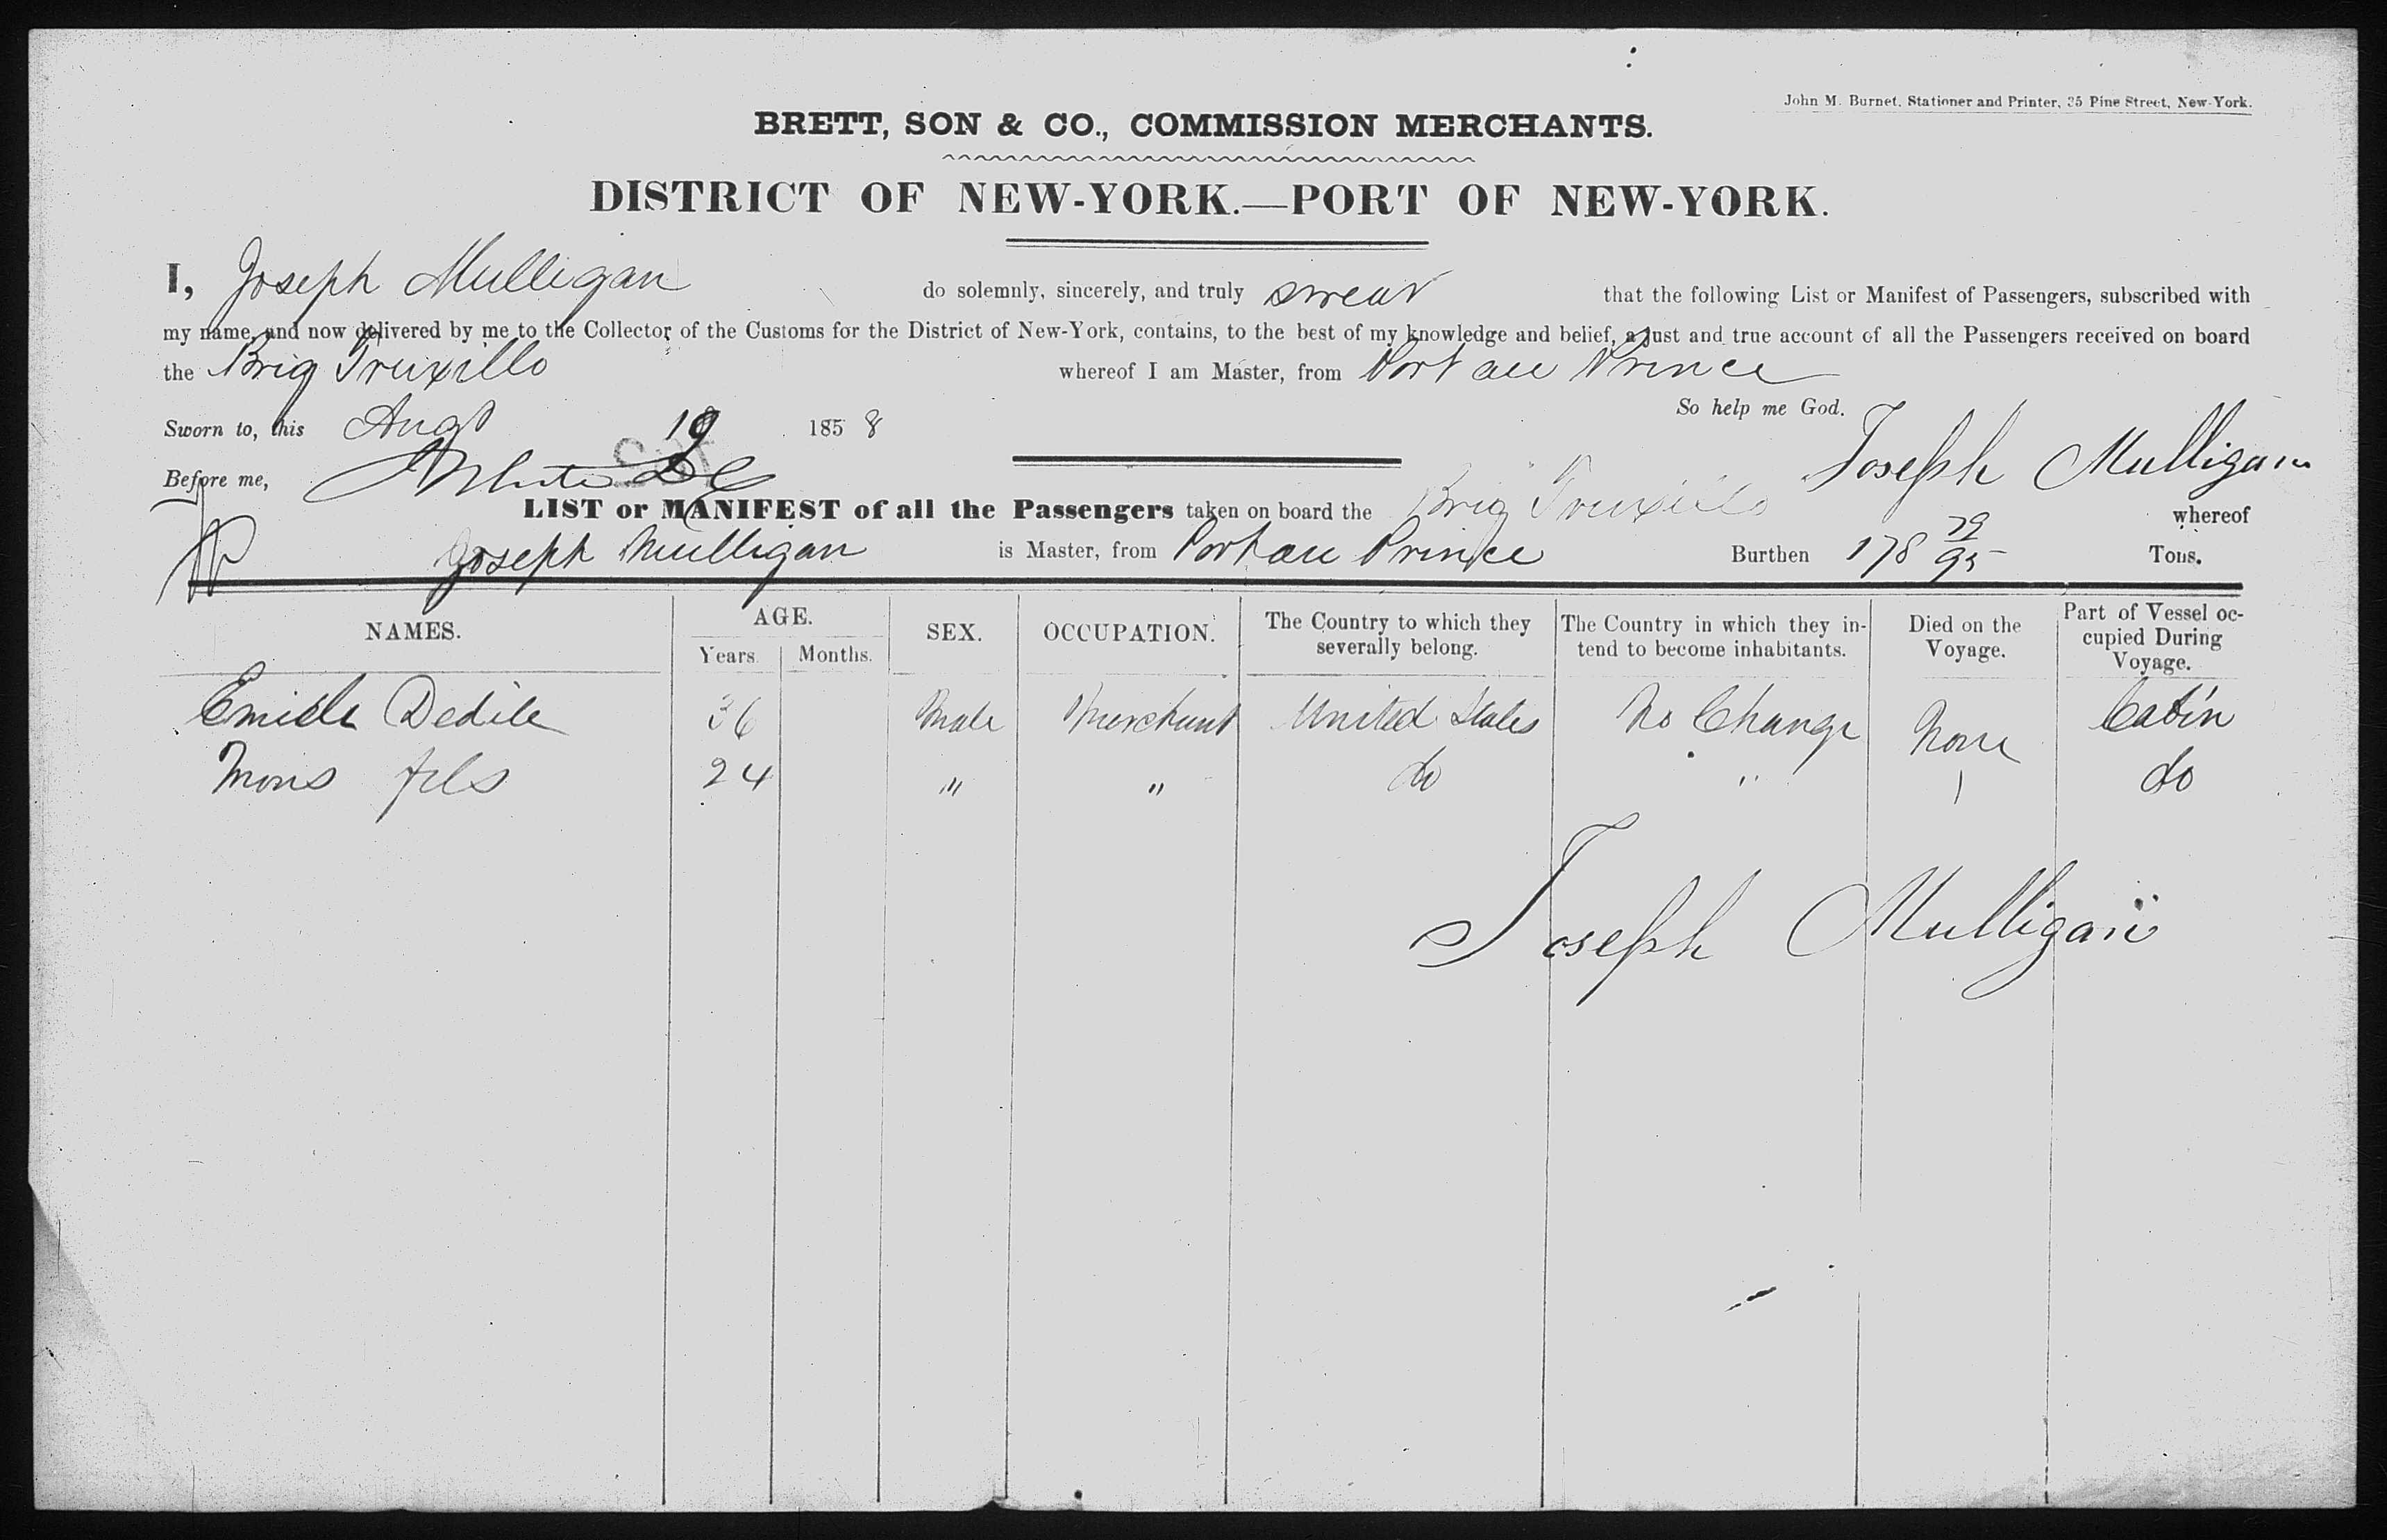 John M. Burnet, Stationer and Printer, 35 Pine Street, New-York.
BRETT, SON & CO., COMMISSION MERCHANTS.
DISTRICT OF NEW-YORK.—PORT OF NEW-YORK.
I, Joseph Mulligan do solemnly, sincerely, and truly swear that the following List or Manifest of Passengers, subscribed with
my name, and now delivered by me to the Collector of the Customs for the District of New-York, contains, to the best of my knowledge and belief, a just and true account of all the Passengers received on board
the Brig Truxillo whereof I am Master, from Port au Prince
So help me God.
Sworn to, this Augt 19 1858
Joseph Mulligan
Before me,
LIST or MANIFEST of all the Passengers taken on board the Brig Truxillo whereof
Joseph Mulligan is Master, from Port au Prince Burthen 178 79/95 Tons.
NAMES. AGE. Years. Months. SEX. OCCUPATION. The Country to which they severally belong. The Country in which they intend to become inhabitants. Died on the Voyage. Part of Vessel occupied During Voyage.
Dedile 36 Male Merchant United States No Change None Cabin
Mons fils 24 " " do " do
Joseph Mulligan